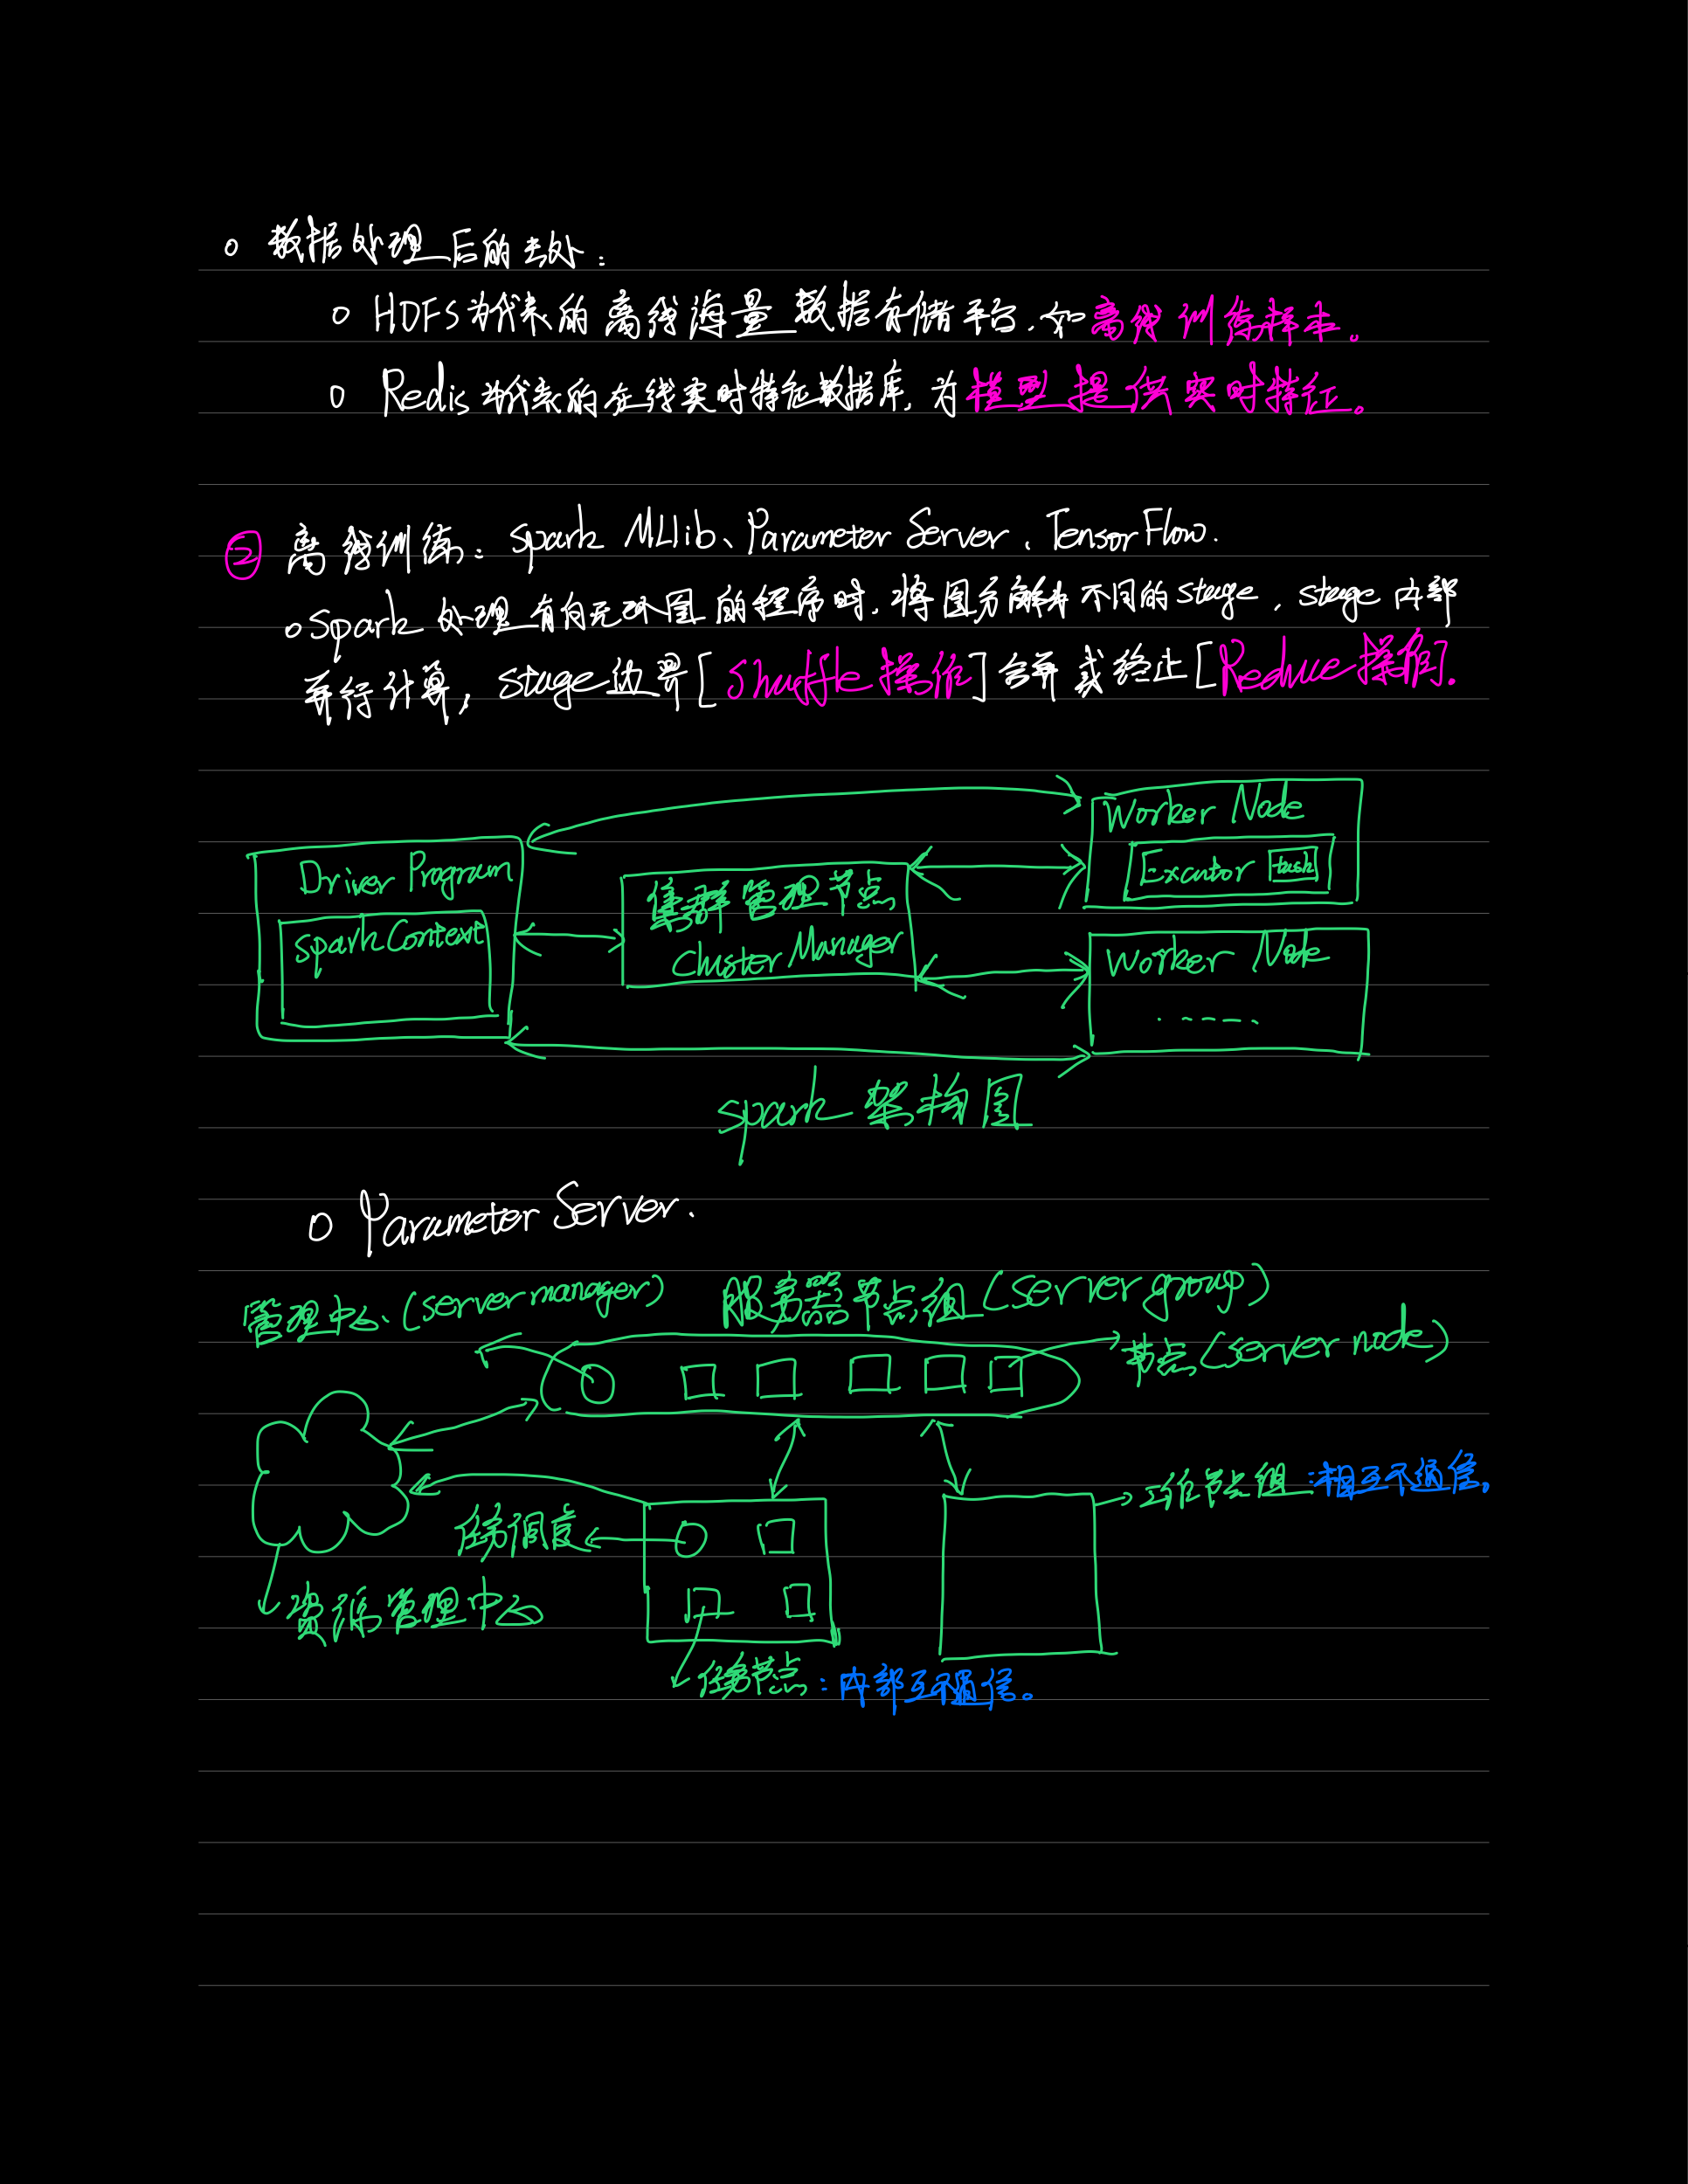 ○ 数据处理后的去处：
○ HDFS为代表的离线海量数据存储平台，如离线训练样本。
○ Redis为代表的在线实时特征数据库，为模型提供实时特征。
② 离线训练：spark MLlib、Parameter Server、TensorFlow.
○ Spark 处理有向无环图的程序时，将图分解为不同的stage，stage内部
并行计算，stage边界[Shuffle操作]合并或终止[Reduce操作].
Worker Node
Excutor task
Driver Program
spark Context
集群管理节点
Cluster Manager
Worker Node
......
spark 架构图
○ Parameter Server.
管理中心(server manager)
服务器节点组(server group)
节点(server node)
工作节点组：相互不通信。
任务调度
资源管理中心
任务节点：内部互不通信。